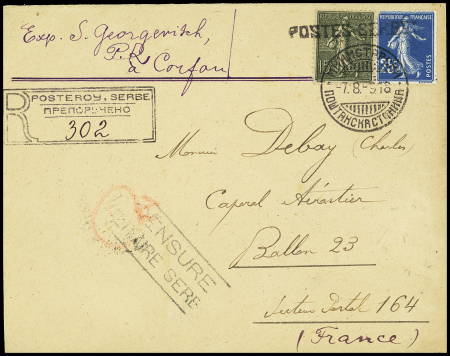 Exp. S. Georgevitch,
P.R.
à Corfou
POSTES SERBES
REPUBLIQUE FRANÇAISE
25
POSTES
-7.8.-918
ПОШТАНСКА СТАНИЦА
R
POSTEROY. SERBE
ПРЕПОРУЧЕНО
302
Monsieur Debay (Charles)
Caporal Aérostier
Ballon 23
Secteur Postal 164
(France)
CENSURE
MILITAIRE SERBE